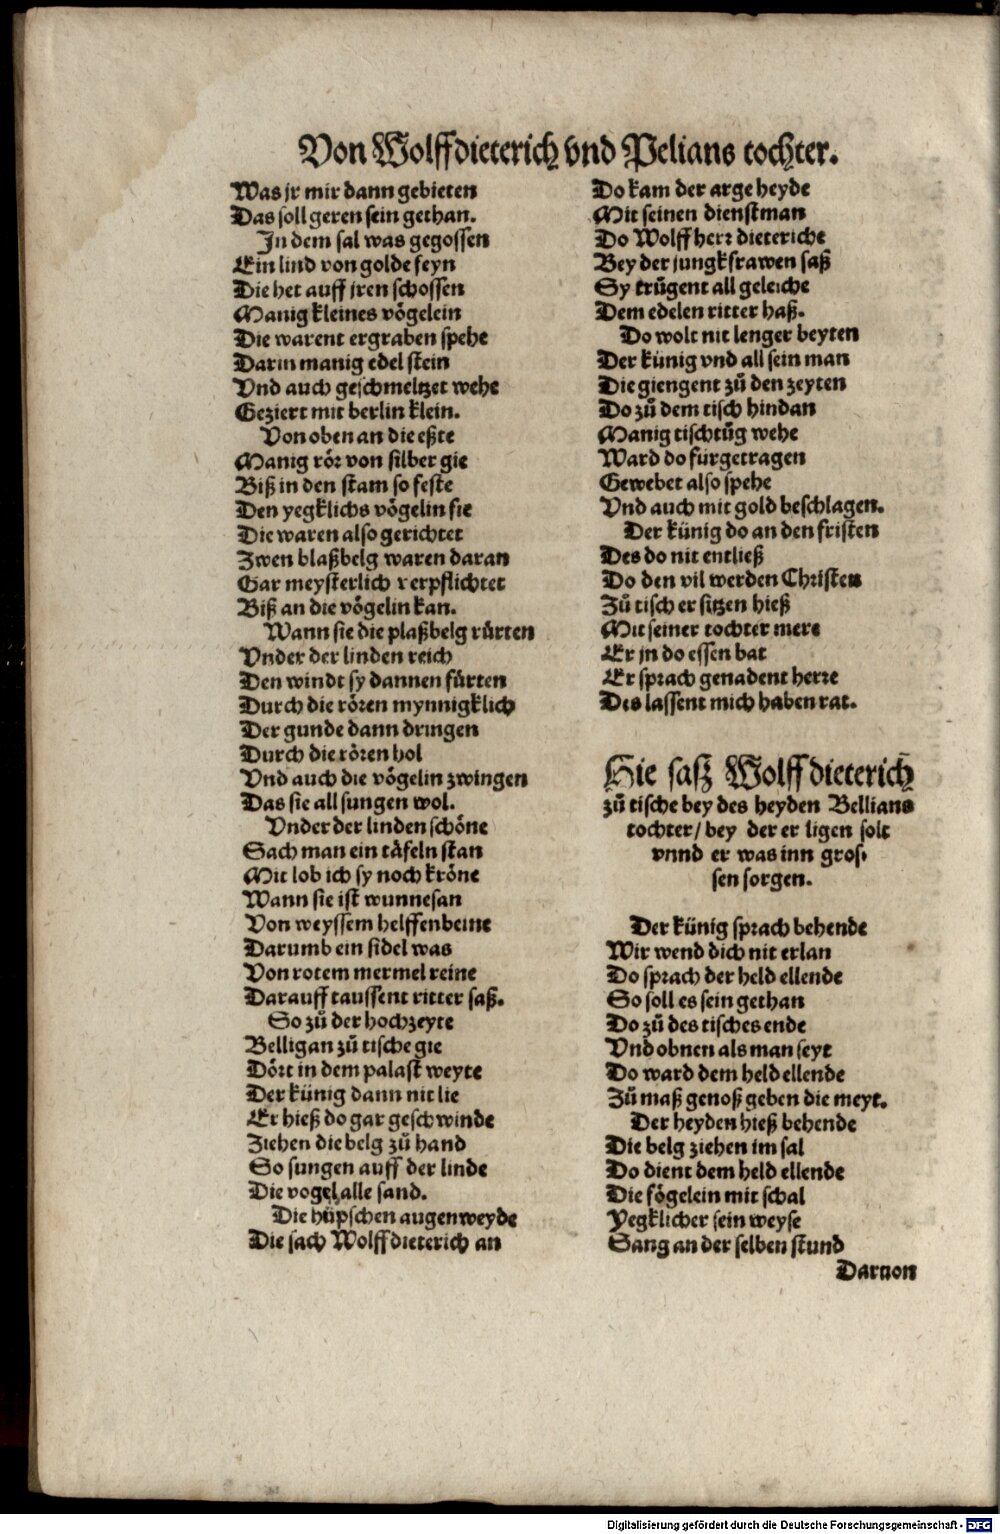 Von Wolffdieterich vnd Pelians tochter.
Was jr mir dann gebieten
Das soll geren sein gethan.
In dem sal was gegossen
Ein lind von golde feyn
Die het auff jren schossen
Manig kleines vögelein
Die warent ergraben spehe
Darin manig edel stein
Vnd auch geschmeltzet wehe
Geziert mit berlin klein.
Von oben an die eßte
Manig rör von silber gie
Biß in den stam so feste
Den yegklichs vögelin fie
Die waren also gerichtet
Zwen blaßbelg waren daran
Gar meysterlich verpflichtet
Biß an die vögelin kan.
Wann sie die plaßbelg rürten
Vnder der linden reich
Den windt sy dannen fürten
Durch die rören mynnigklich
Der gunde dann dringen
Durch die rören hol
Vnd auch die vögelin zwingen
Das sie all sungen wol.
Vnder der linden schöne
Sach man ein täfeln stan
Mit lob ich sy noch kröne
Wann sie ist wunnesan
Von weyssem helffenbeine
Darumb ein sidel was
Von rotem mermel reine
Darauff taussent ritter saß.
So zů der hochzeyte
Belligan zů tische gie
Dört in dem palast weyte
Der künig dann nit lie
Er hieß do gar geschwinde
Ziehen die belg zů hand
So sungen auff der linde
Die vogel alle sand.
Die hüpschen augenweyde
Die sach Wolffdieterich an
Do kam der arge heyde
Mit seinen dienstman
Do Wolff herr dieteriche
Bey der jungkfrawen saß
Sy trügent all geleiche
Dem edelen ritter haß.
Do wolt nit lenger beyten
Der künig vnd all sein man
Die giengent zů den zeyten
Do zů dem tisch hindan
Manig tischtůg wehe
Ward do fürgetragen
Gewebet also spehe
Vnd auch mit gold beschlagen.
Der künig do an den fristen
Des do nit entließ
Do den vil werden Christen
Zů tisch er sitzen hieß
Mit seiner tochter mere
Er jn do essen bat
Er sprach genadent herre
Des lassent mich haben rat.
Hie sasz Wolffdieterich
zů tische bey des heyden Bellians
tochter/ bey der er ligen solt
vnnd er was inn gros-
sen sorgen.
Der künig sprach behende
Wir wend dich nit erlan
Do sprach der held ellende
So soll es sein gethan
Do zů des tisches ende
Vnd obnen als man seyt
Do ward dem held ellende
Zů maß genoß geben die meyt.
Der heyden hieß behende
Die belg ziehen im sal
Do dient dem held ellende
Die fögelein mit schal
Yegklicher sein weyse
Sang an der selben stund
Daruon
Digitalisierung gefördert durch die Deutsche Forschungsgemeinschaft - DFG